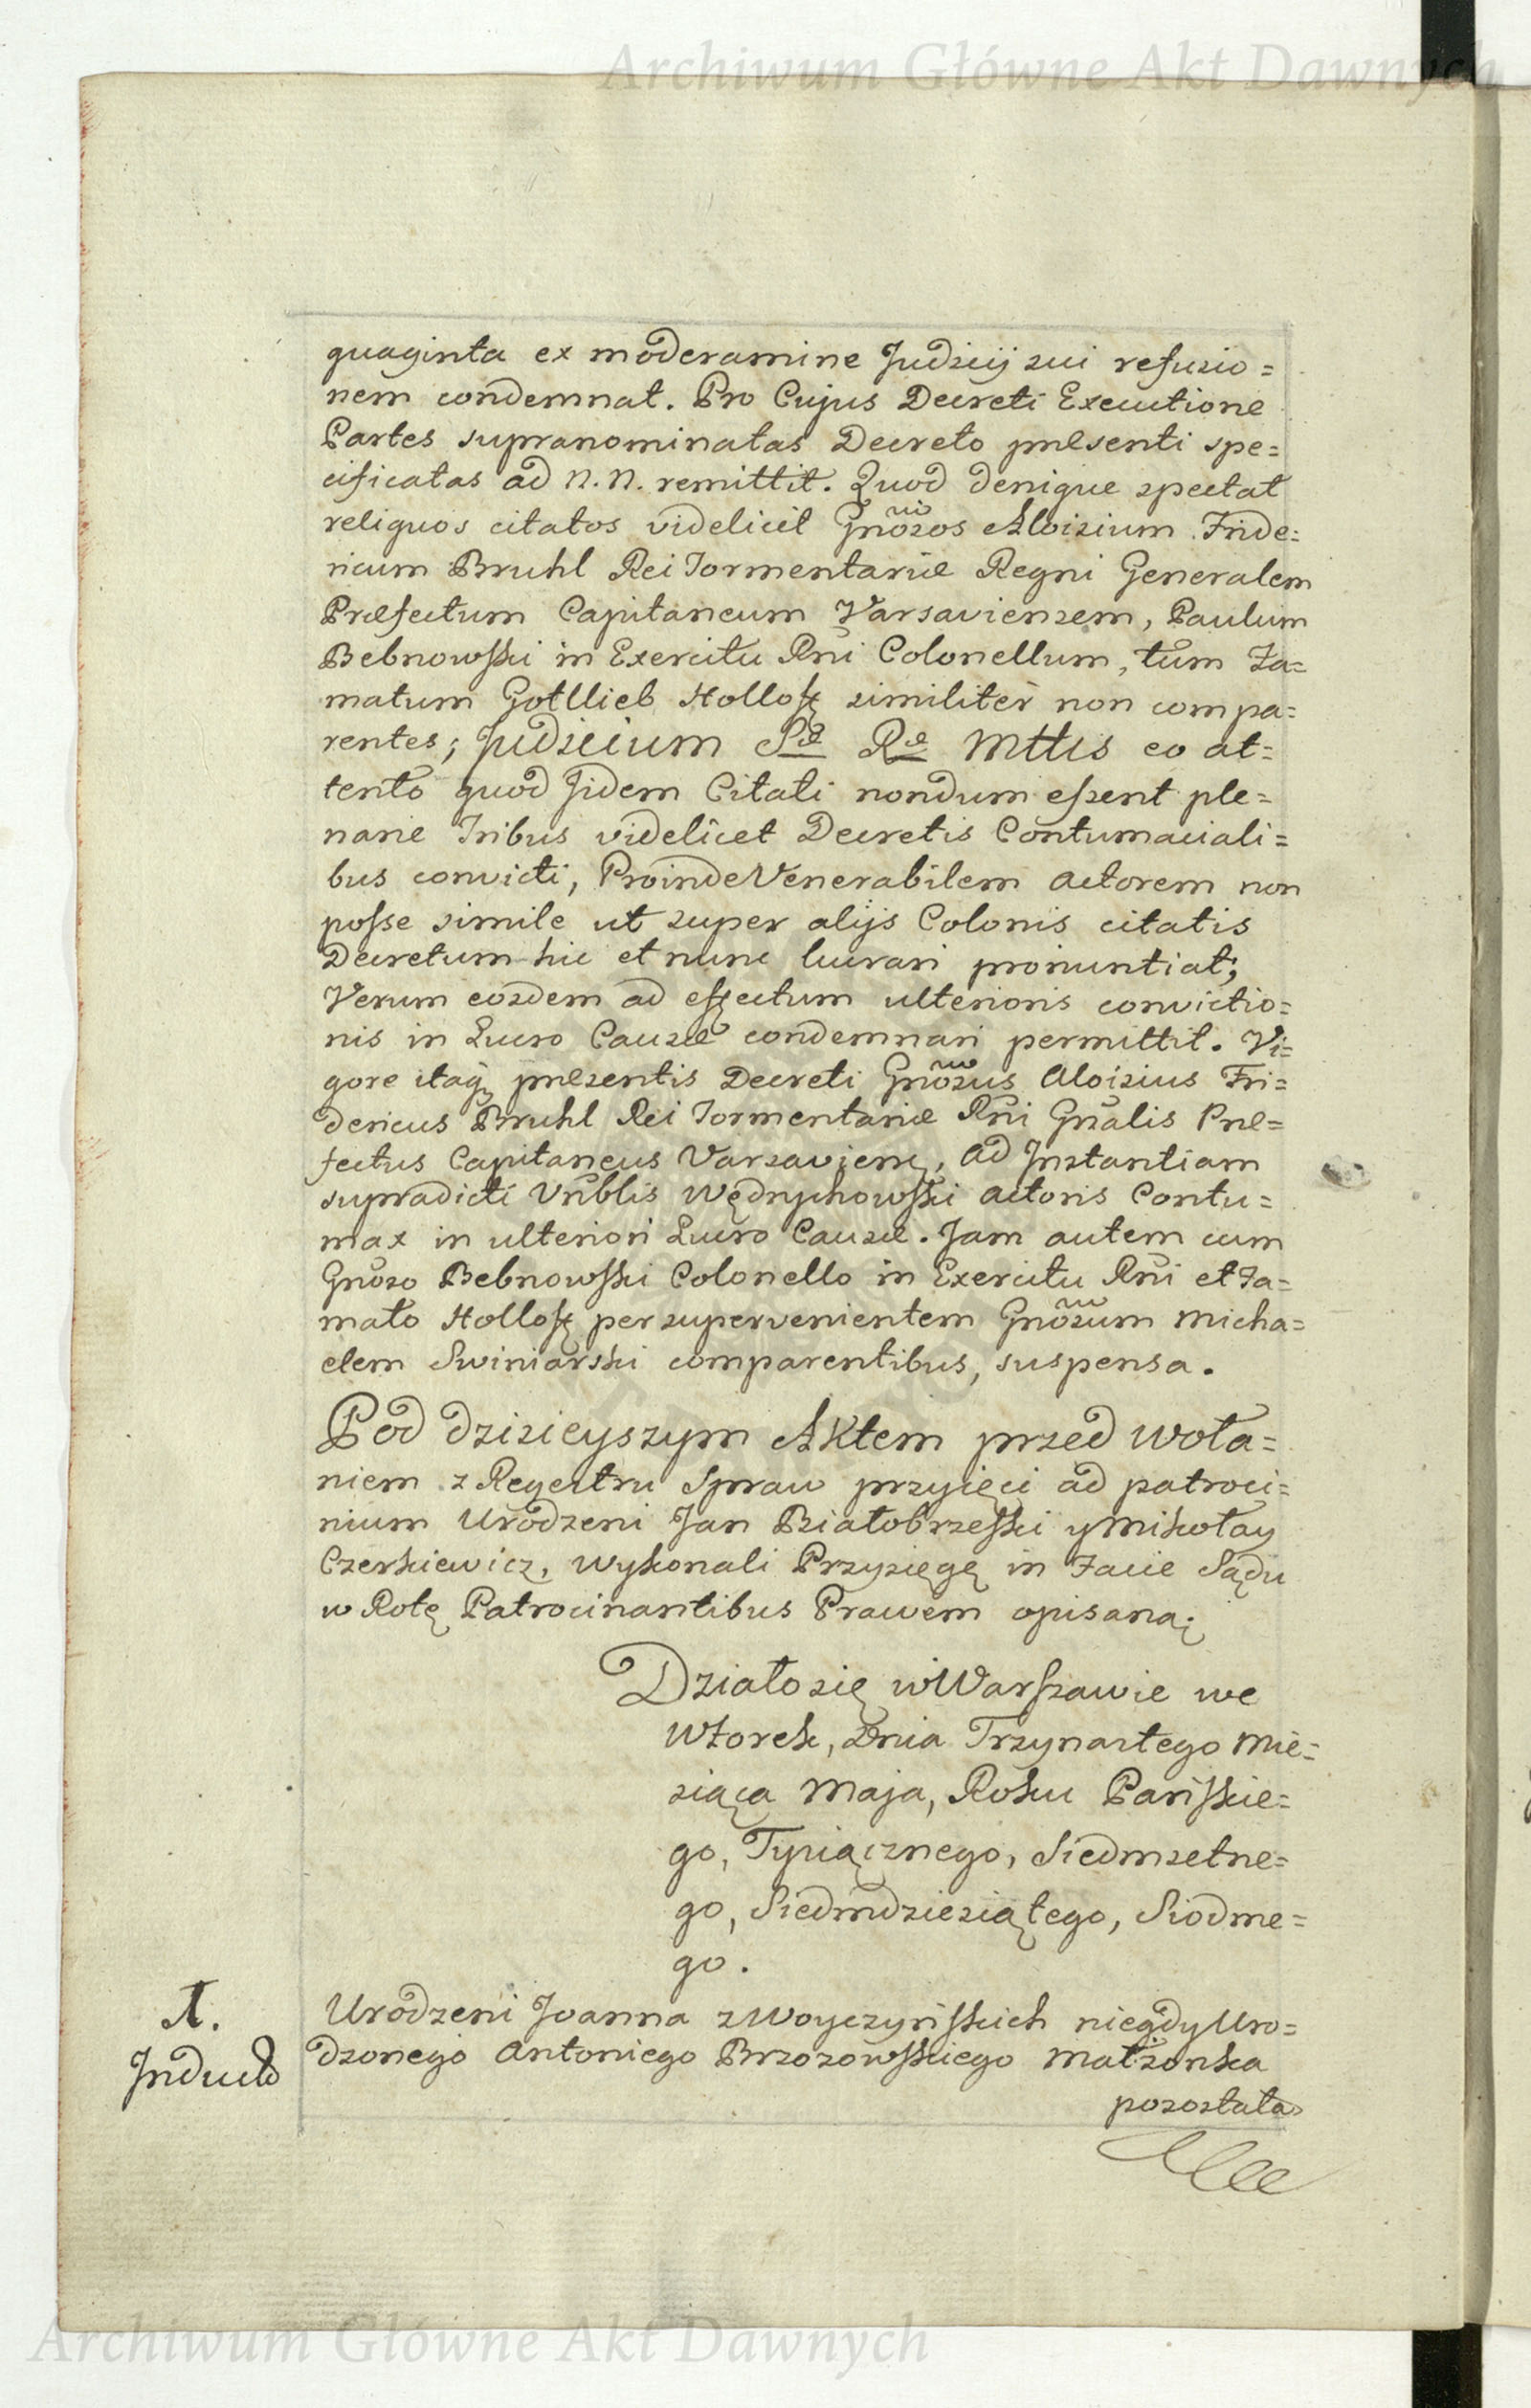 Archiwum Główne Akt Dawnych
quaginta ex moderamine Judicij sui refusio=
nem condemnat. Pro Cujus Decreti Executione
Partes supranominatas Decreto præsenti spe=
cificatas ad N. N. remittit. Quod denique spectat
reliquos citatos videlicet Gnõsos Aloisium Fride=
ricum Bruhl Rei Tormentariæ Regni Generalem
Præfectum Capitaneum Varsaviensem, Paulum
Bebnowski in Exercitu Rni Colonellum, tum Fa=
matum Gottlieb Holloſz similiter non compa=
rentes; Judicium Sæ Ræ Mttis eo at=
tento quod Jidem Citati nondum eſsent ple=
narie Tribus videlicet Decretis Contumaciali=
bus convicti, Proinde Venerabilem Actorem non
poſse simile ut super alijs Colonis citatis
Decretum hic et nunc lucrari pronuntiat;
Verum eosdem ad effectum ulterioris convictio=
nis in Lucro Causæ condemnari permittit. Vi=
gore itaq præsentis Decreti Gnõsus Aloisius Fri=
dericus Bruhl Rei Tormentariæ Rni Gnalis Præ=
fectus Capitaneus Varsaviens, ad Jnstantiam
supradicti Vnblis Wędrychowski Actoris Contu=
max in ulteriori Lucro Causæ. Jam autem cum
Gnoso Bebnowski Colonello in Exercitu Rni et Fa=
mato Holloſz per supervenientem Gnõsum Micha=
elem Swiniarski comparentibus, suspensa.
Pod dzisieyszym Aktem przed woła=
niem z Regestru Spraw przyięci ad patroci=
nium Urodzeni Jan Białobrzeski y Mikołay
Czerkiewicz, wykonali Przysięgę in Facie Sądu
w Rotę Patrocinantibus Prawem opisaną;
Działo się w Warſzawie we
Wtorek, Dnia Trzynastego Mie=
siąca Maja, Roku Pańſkie=
go, Tysiącznego, Siedmsetne=
go, Siedmdziesiątego, Siodme=
go.
1.
Jnducta
Urodzeni Joanna z Woyczyńſkich niegdy Uro=
dzonego Antoniego Brzozowſkiego Małżonka
pozostała
Archiwum Główne Akt Dawnych